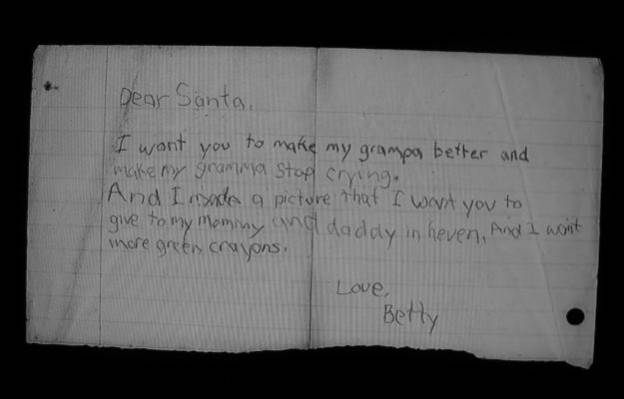 Dear Santa.
I want you to make my grampa better and
make my gramma stop crying.
And I made a picture that I want you to
give to my mommy and daddy in heven. And I want
more green crayons.
Love,
Betty